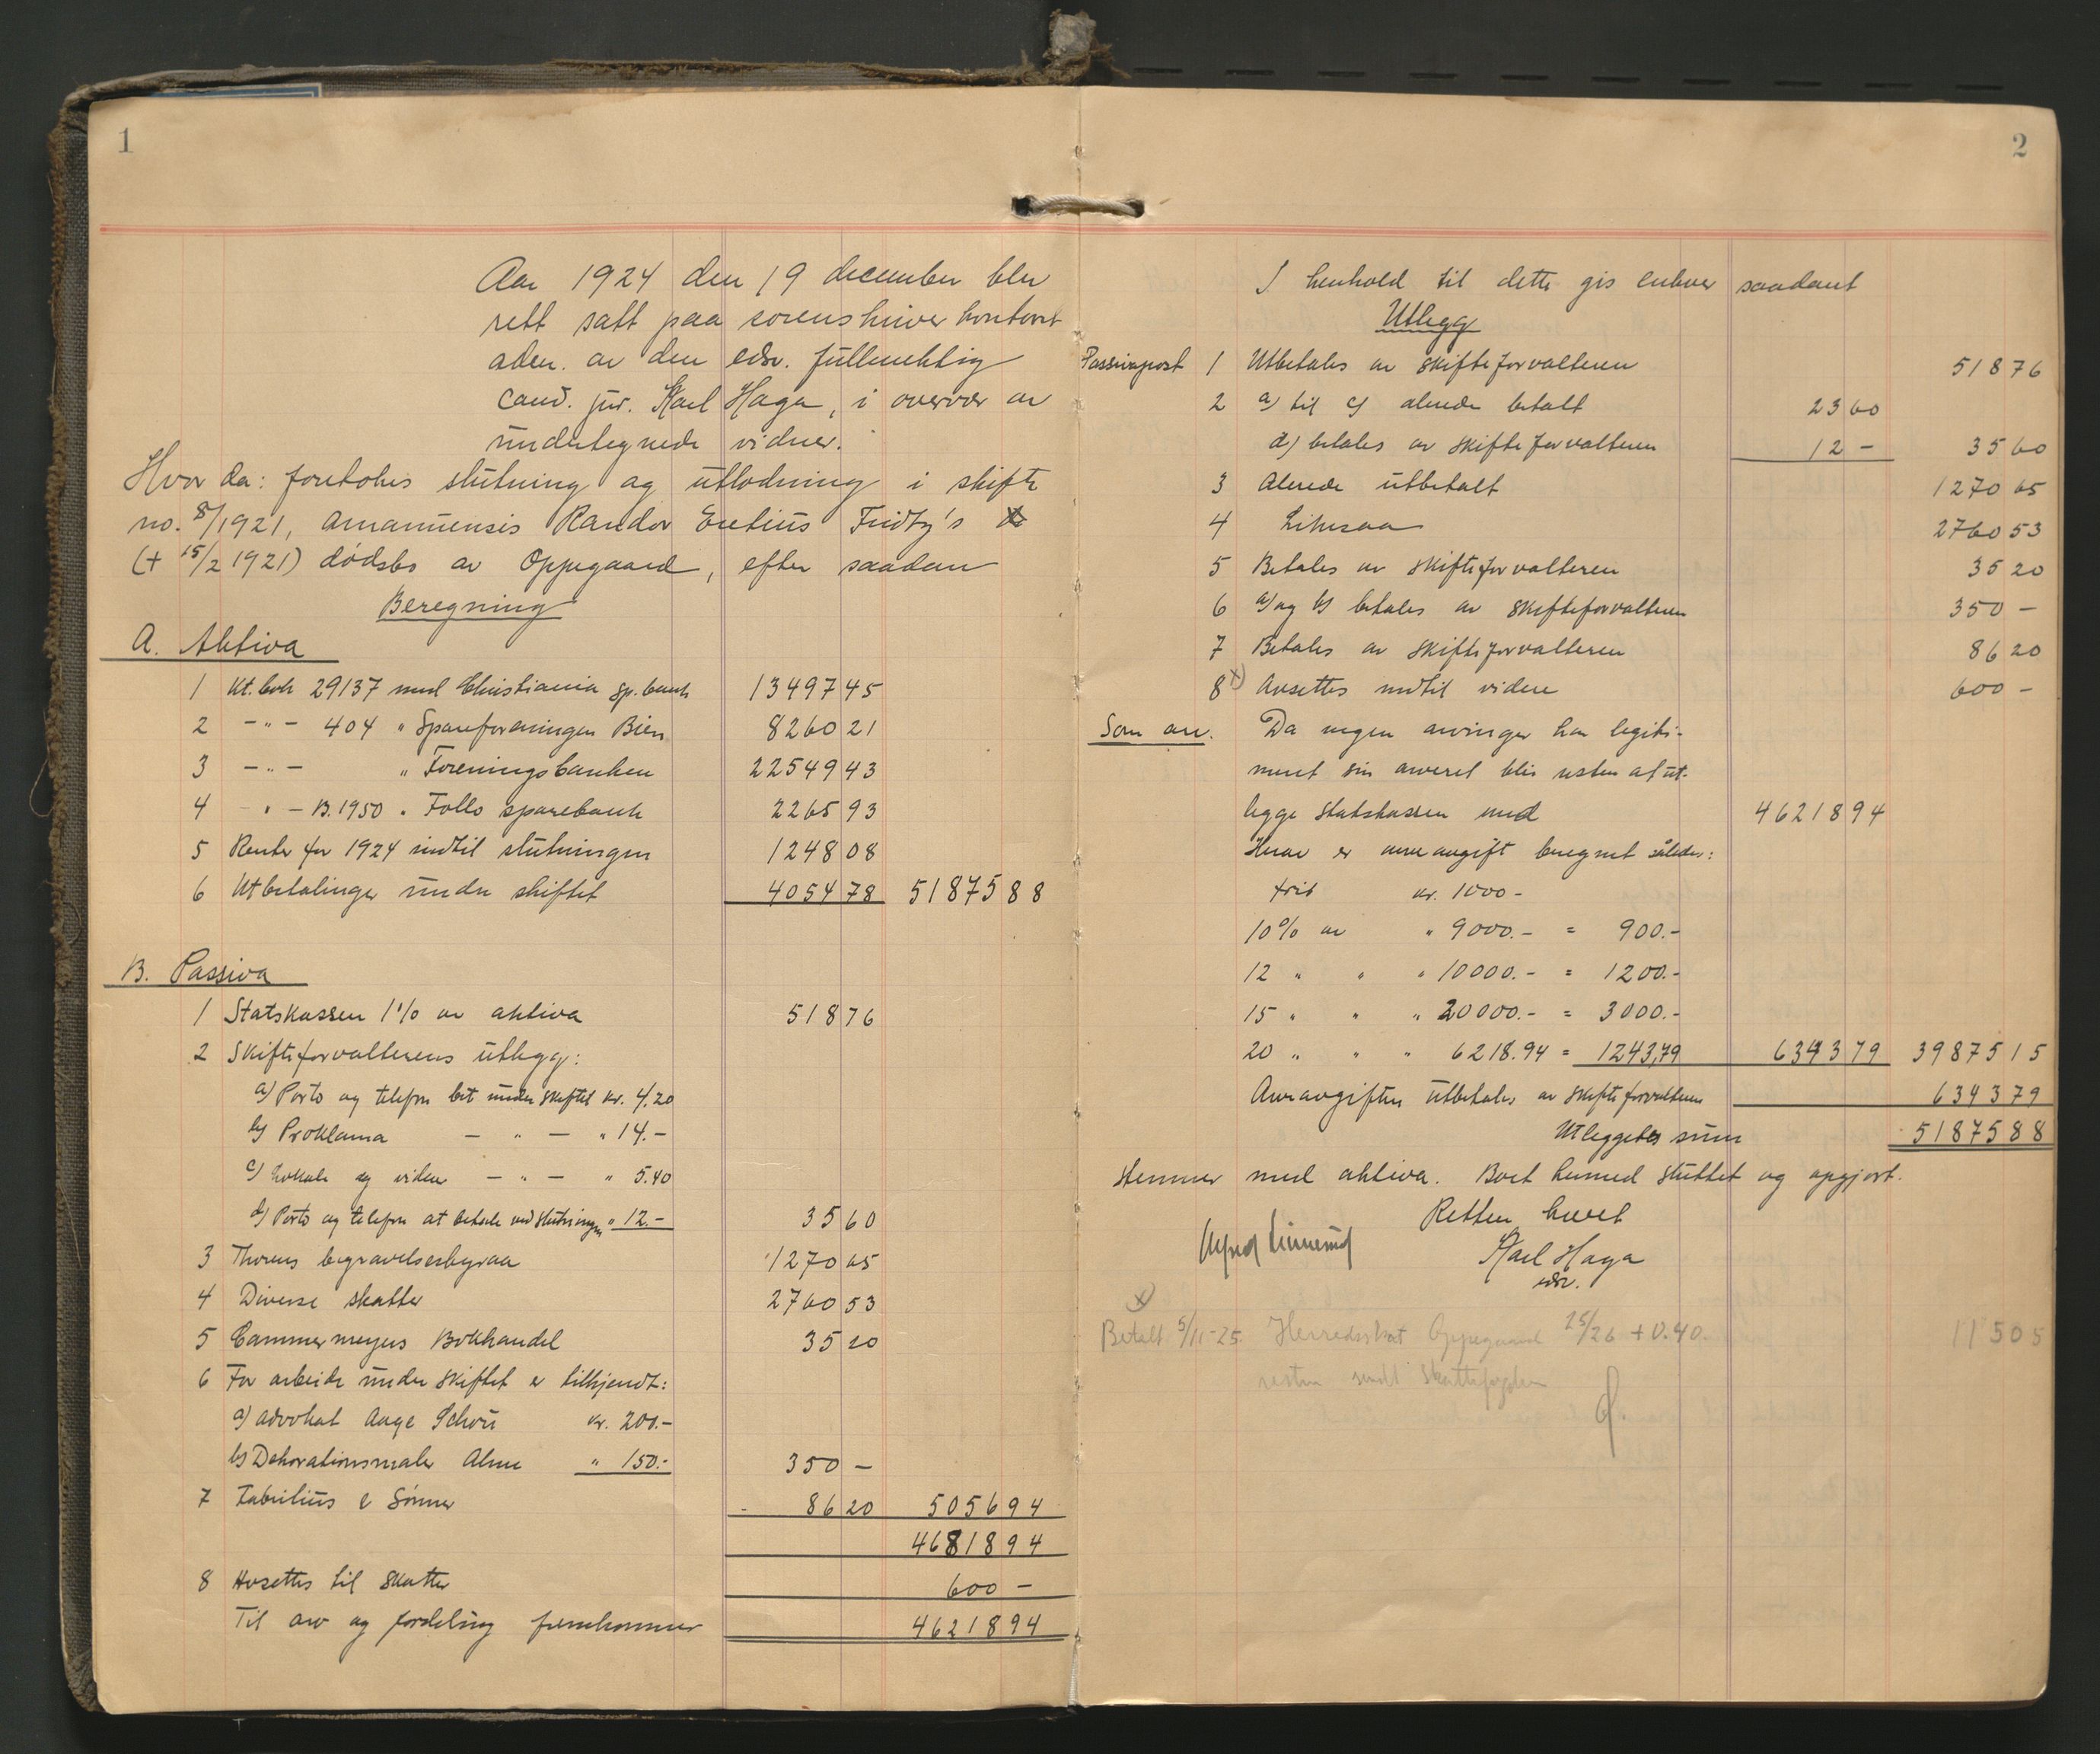 1
Aar 1924 den 19 december blev
rett satt paa sorenskriverkontoret
adm. av den edsv. fullmektig
cand. jur. Karl Haga, i overvær av
undertegnede vidner.
Hvor da: foretokes slutning og utlodning i skifte
no. 8/1921, amanuensis Randor Fridtz's
(+ 15/2 1921) dødsbo av Oppegaard, efter saadan
Beregning
A. Aktiva
1 Kt. bok 29137 med Christiania sp. bank 13497 45
2 - " - 404 " Spareforeningen Bien 8260 21
3 - " - " Foreningsbanken 22549 43
4 " - B. 1950 " Follo sparebank 2265 93
5 Renter for 1924 indtil slutningen 1248 08
6 Utbetalinger under skiftet 4054 78 51875 88
B. Passiva
1 Statskassen 1% av aktiva 518 76
2 Skifteforvalterens utlegg:
a) Porto og telefon bet. under skiftet kr. 4.20
b) Proklama - " - " 14.-
c) Lokale og vidner - " - " 5.40
d) Porto og telefon at betale ved slutningen " 12.- 35 60
3 Thorens begravelsesbyraa 1270 65
4 Diverse skatter 2760 53
5 Cammermeyers Bokhandel 35 20
6 For arbeide under skiftet er tilkjendt:
a) advokat Aage Schou kr. 200.-
b) Dekorationsmaler Alme " 150.- 350 -
7 Fabritius & Sønner 86 20 5056 94
46818 94
8 Avsettes til skatter 600 -
Til arv og fordeling fremkommer 46218 94
2
I henhold til dette gis enhver saadant
Utlegg
Passivapost 1 Utbetales av skifteforvalteren 518 76
2 a) til c) allerede betalt 23 60
d) betales av skifteforvalteren 12 - 35 60
3 Allerede utbetalt 1270 65
4 Likesaa 2760 53
5 Betales av skifteforvalteren 35 20
6 a) og b) betales av skifteforvalteren 350 -
7 Betales av skifteforvalteren 86 20
8 x) Avsettes indtil videre 600 -
Som arv. Da ingen arvinger har legiti-
mert sin arveret blir resten at ut-
legge Statskassen med 46218 94
Herav er arveavgift beregnet således:
frit kr. 1000 -
10% av " 9000.- = 900.-
12 " " " 10000.- = 1200.-
15 " " " 20000.- = 3000.-
20 " " " 6218.94 = 1243,79 6343 79 39875 15
Arveavgiften utbetales av skifteforvalteren 6343 79
Utleggets sum 51875 88
stemmer med aktiva. Boet hermed sluttet og opgjort.
Retten hevet
Karl Haga
edsv.
x)
Betalt 5/11-25 Herredsskat Oppegaard 25/26 + 0.40. 115 05
resten sendt skattefogden